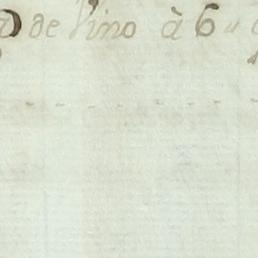 de Vino à 6